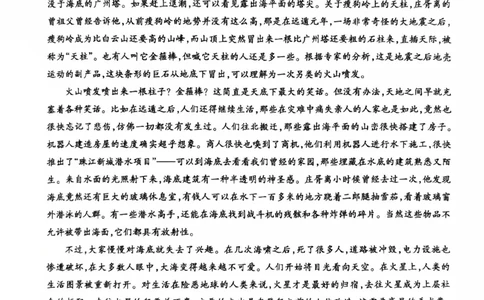 没于海底的广州塔。如果赶上退潮，还可以看见露出海平面的塔尖。关于瘦狗岭上的天柱，庄胥的
曾祖父曾经告诉他，从前瘦狗岭的地势并没有这么高，那是在远遁元年，一场非常奇怪的大地震之后，
瘦狗岭成为比白云山还要高的山峰，而山顶上突然冒出来一根比广州塔还要粗的石柱来，直插天际，被
称为“天柱”。也有人叫它金箍棒，但喊它天柱的人还是多一些。根据专家的分析，这是地震之后地壳
运动的副产品，这块条形的巨石从地底下冒出，可以理解为一次另类的火山喷发。
火山喷发喷出来一根柱子？金箍棒？这简直是天底下最大的笑话。但没有办法，天地之间早就充
塞着各种笑话。比如在远遁之后，人们还得继续生活，那些在灾难中痛失亲人的人家也是如此，竟然也
很快忘记了悲伤，仿佛一切都没有发生过。人们往北搬迁，那些露出海平面的山峦很快搭建了房子。
机器人建造房屋的速度确实超乎想象。商人很快也嗅到了商机，他们利用机器人进行水下施工，很快
推出了“珠江新城潜水项目”——可以到海底去看看我们曾经的家园，那些埋藏在水底的建筑熟悉又陌
生。来自水面的光照射下来，海底建筑有一种半透明的神圣感。庄胥离小时候曾经去过一次，他发现
海底竟然还有巨大的玻璃休息室，有钱人可以在水下一百多米的地方跷着二郎腿抽雪茄，看着玻璃窗
外游泳的人群。有一些潜水高手，还能在海底找到战斗机的残骸和各种炸弹的碎片。当然这些物品不
允许被带出海面，它们都具有放射性。
不过，大家慢慢对海底就失去了兴趣。在几次海啸之后，死了很多人，道路被冲毁，电力设施也
惨遭破坏，在大多数人眼中，大海变得越来越不可爱。人们开始将目光看向天空。在火星上，人类的
生活图景被重新打开。对生活在险恶地球的人类来说，火星才是最好的归宿，去往火星成为上层社